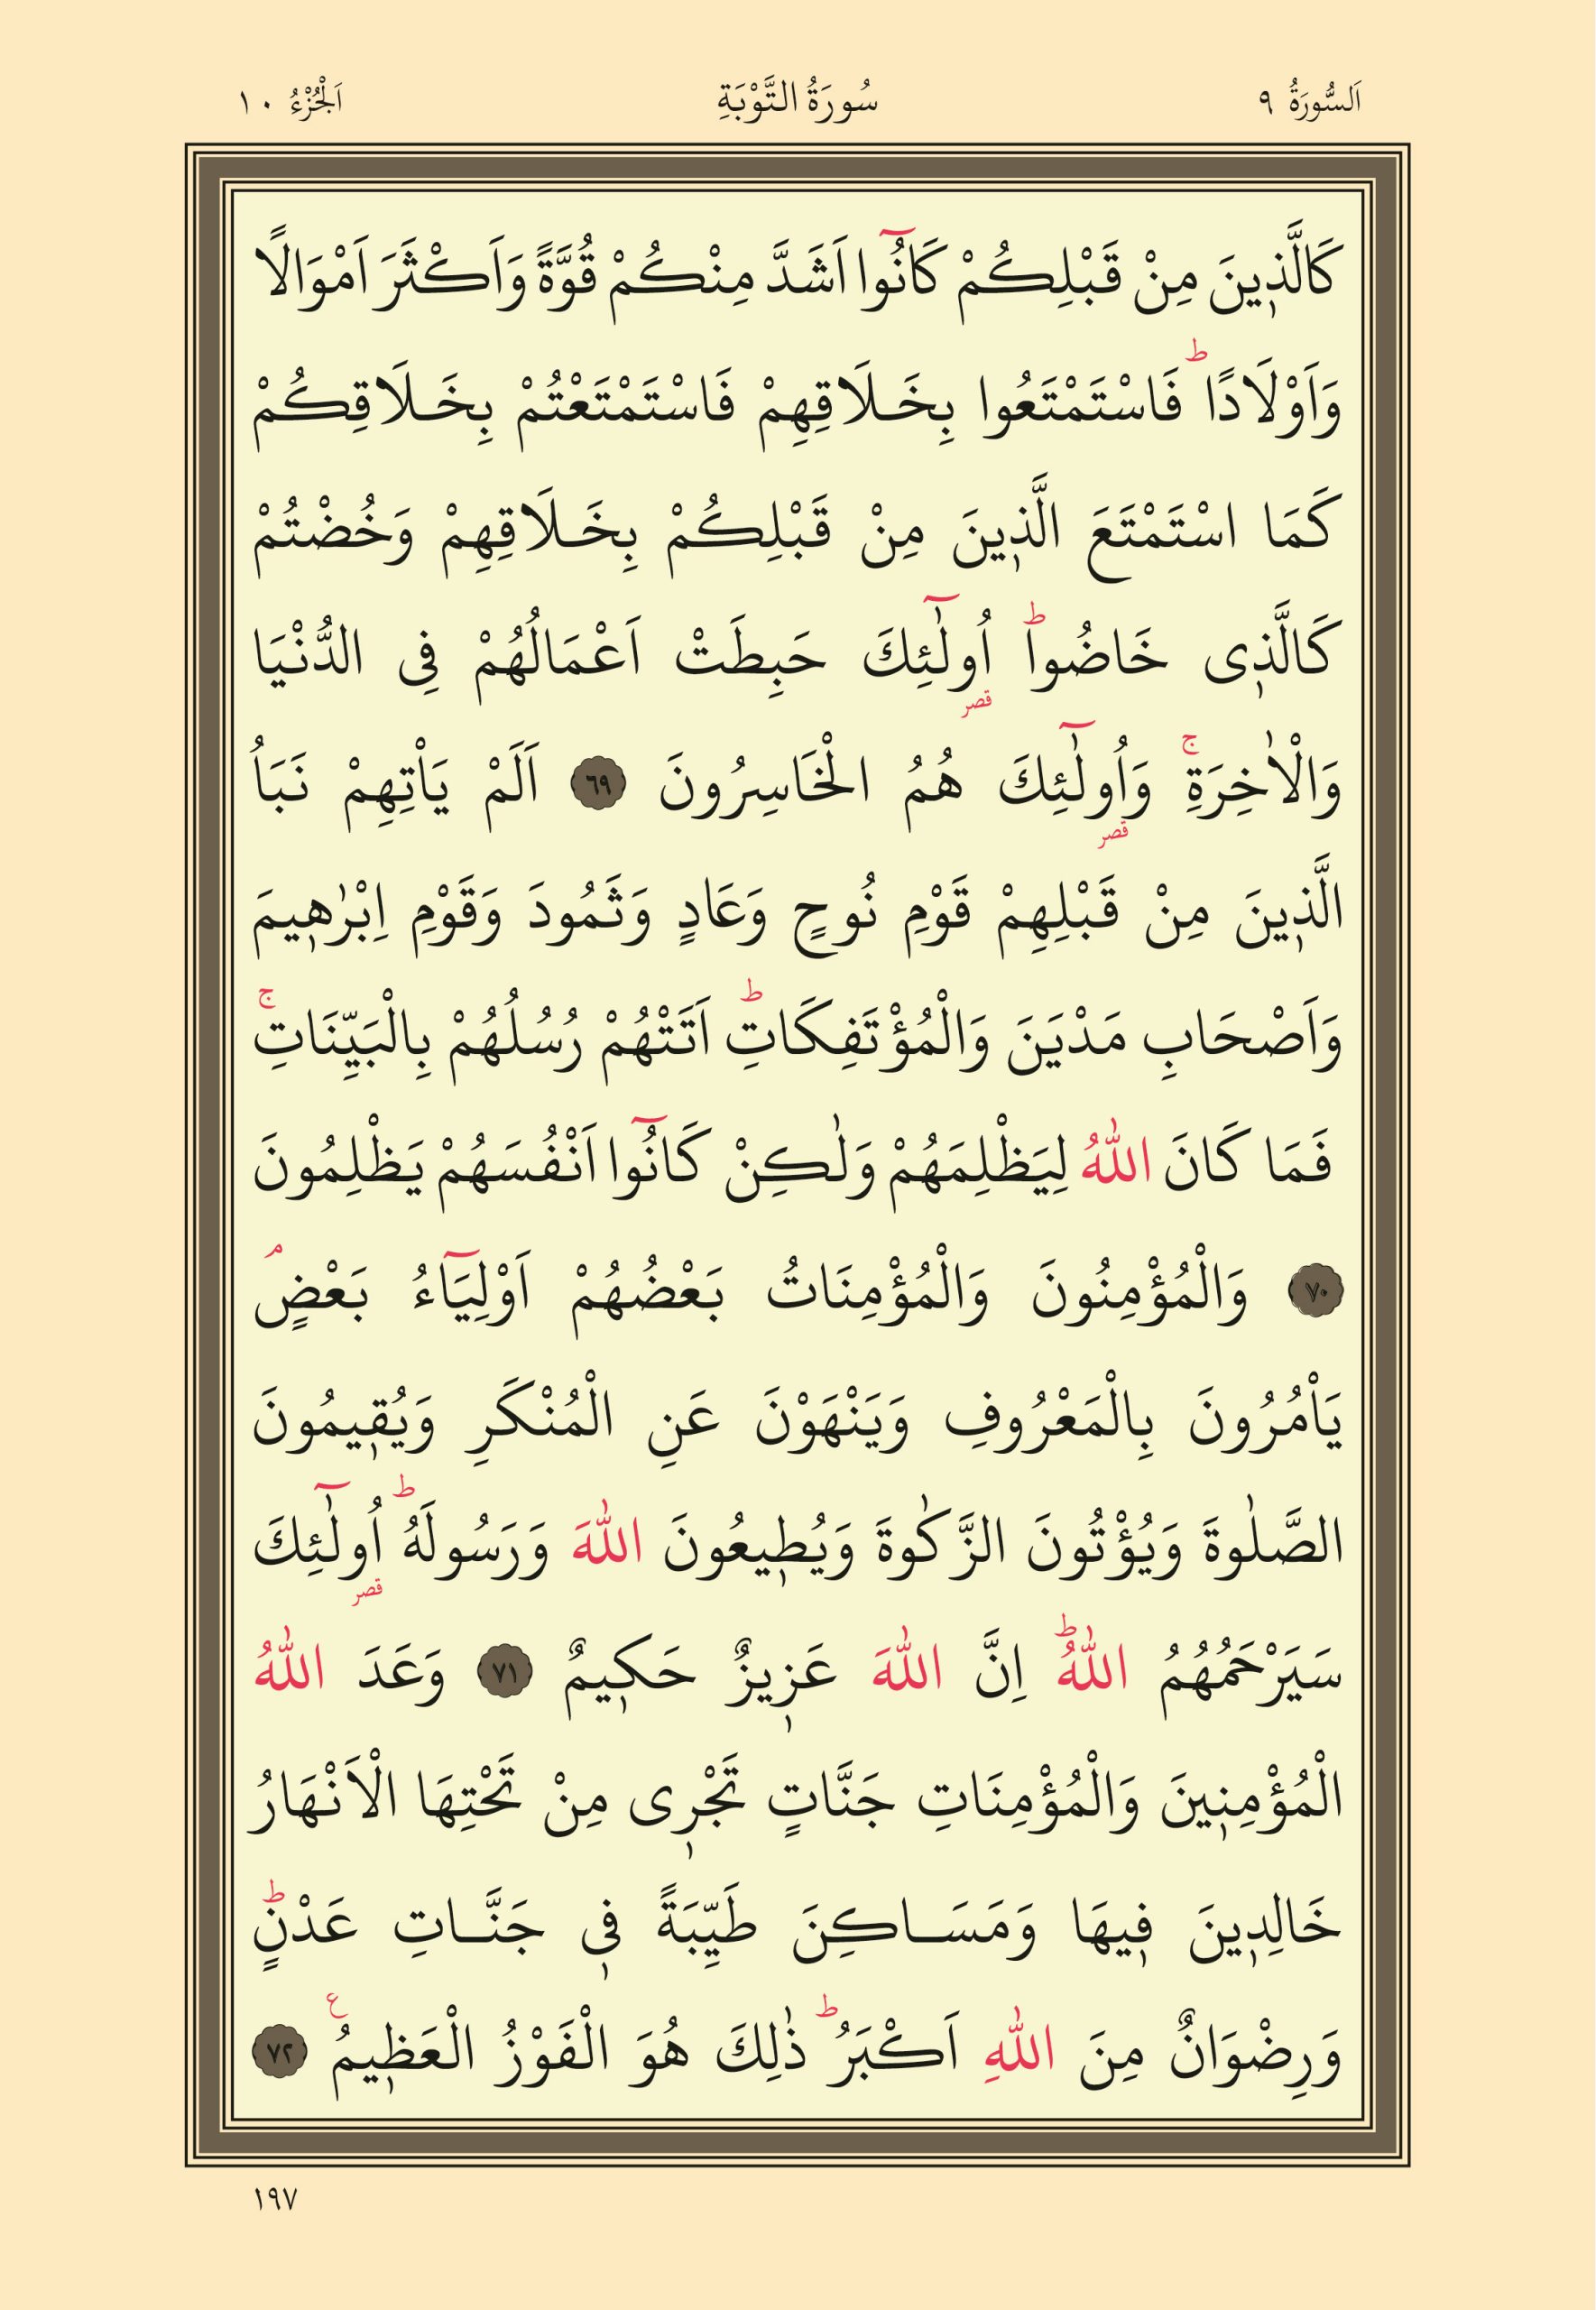 اَلسُّورَةُ ٩ سُورَةُ التَّوْبَةِ اَلْجُزْءُ ١٠
كَالَّذ۪ينَ مِنْ قَبْلِكُمْ كَانُٓوا اَشَدَّ مِنْكُمْ قُوَّةً وَاَكْثَرَ اَمْوَالًا
وَاَوْلَادًاۜ فَاسْتَمْتَعُوا بِخَـلَاقِهِمْ فَاسْتَمْتَعْتُمْ بِخَـلَاقِكُمْ
كَمَا اسْتَمْتَعَ الَّذ۪ينَ مِنْ قَبْلِكُمْ بِخَـلَاقِهِمْ وَخُضْتُمْ
كَالَّذ۪ى خَاضُواۜ اُولٰٓئِكَ حَبِطَتْ اَعْمَالُهُمْ فِى الدُّنْيَا
قصر
وَالْاٰخِرَةِۚ وَاُولٰٓئِكَ هُمُ الْخَاسِرُونَ ٦٩ اَلَمْ يَاْتِهِمْ نَبَاُ
قصر
الَّذ۪ينَ مِنْ قَبْلِهِمْ قَوْمِ نُوحٍ وَعَادٍ وَثَمُودَ وَقَوْمِ اِبْرٰه۪يمَ
وَاَصْحَابِ مَدْيَنَ وَالْمُؤْتَفِكَاتِۜ اَتَتْهُمْ رُسُلُهُمْ بِالْبَيِّنَاتِۚ
فَمَا كَانَ اللّٰهُ لِيَظْلِمَهُمْ وَلٰكِنْ كَانُٓوا اَنْفُسَهُمْ يَظْلِمُونَ
٧٠ وَالْمُؤْمِنُونَ وَالْمُؤْمِنَاتُ بَعْضُهُمْ اَوْلِيَٓاءُ بَعْضٍۢ
يَاْمُرُونَ بِالْمَعْرُوفِ وَيَنْهَوْنَ عَنِ الْمُنْكَرِ وَيُق۪يمُونَ
الصَّلٰوةَ وَيُؤْتُونَ الزَّكٰوةَ وَيُط۪يعُونَ اللّٰهَ وَرَسُولَهُۜ اُولٰٓئِكَ
قصر
سَيَرْحَمُهُمُ اللّٰهُۜ اِنَّ اللّٰهَ عَز۪يزٌ حَك۪يمٌ ٧١ وَعَدَ اللّٰهُ
الْمُؤْمِن۪ينَ وَالْمُؤْمِنَاتِ جَنَّاتٍ تَجْر۪ى مِنْ تَحْتِهَا الْاَنْهَارُ
خَالِد۪ينَ ف۪يهَا وَمَسَـاكِنَ طَيِّبَةً ف۪ى جَنَّـاتِ عَدْنٍۜ
وَرِضْوَانٌ مِنَ اللّٰهِ اَكْبَرُۜ ذٰلِكَ هُوَ الْفَوْزُ الْعَظ۪يمُ ع ٧٢
١٩٧